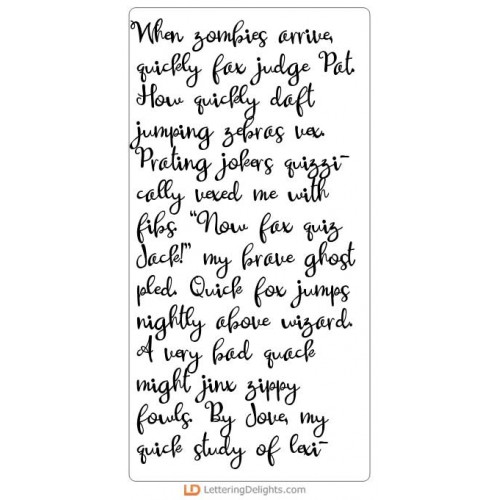 When zombies arrive,
quickly fax judge Pat.
How quickly daft
jumping zebras vex.
Prating jokers quizzi-
cally vexed me with
fibs. "Now fax quiz
Jack!" my brave ghost
pled. Quick fox jumps
nightly above wizard.
A very bad quack
might jinx zippy
fowls. By Jove, my
quick study of lexi-
LD LetteringDelights.com